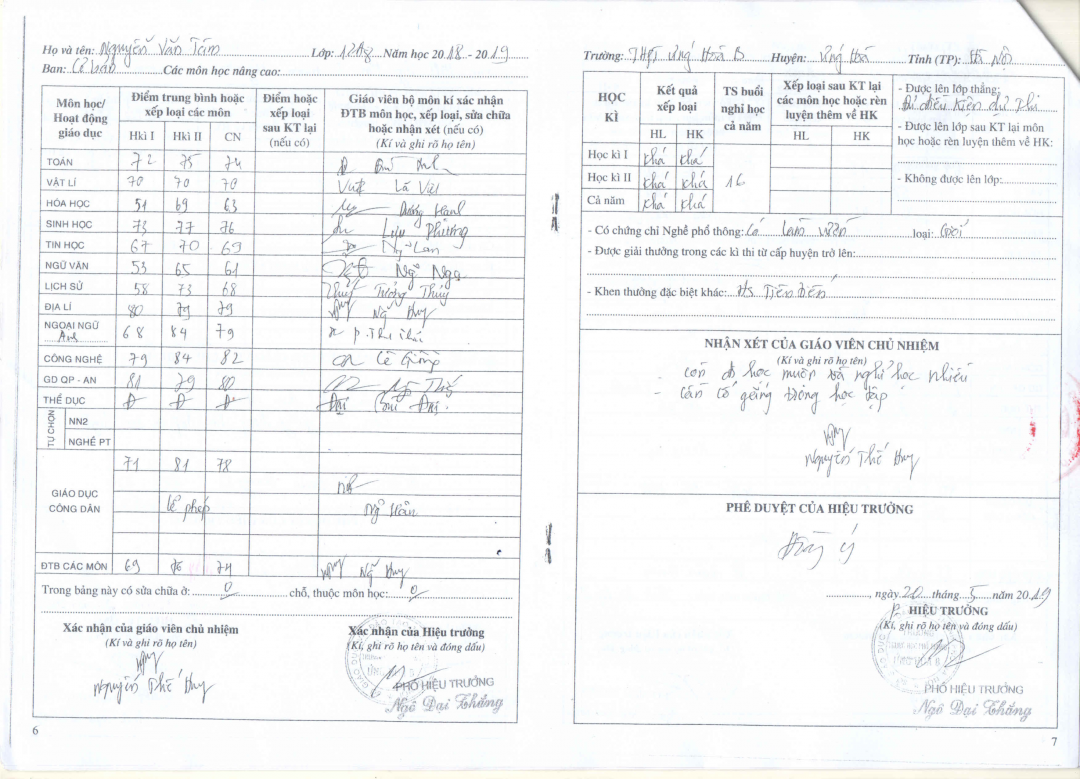 Họ và tên: Nguyễn Văn Tám Lớp: 12A8 Năm học 2018 - 2019
Ban: Cơ bản Các môn học nâng cao:
Môn học/ Hoạt động giáo dục
Điểm trung bình hoặc xếp loại các môn
Hkì I Hkì II CN
Điểm hoặc xếp loại sau KT lại (nếu có)
Giáo viên bộ môn kí xác nhận ĐTB môn học, xếp loại, sửa chữa hoặc nhận xét (nếu có)
(Kí và ghi rõ họ tên)
TOÁN 72 75 74
VẬT LÍ 70 70 70
HÓA HỌC 51 69 63 Dương Hạnh
SINH HỌC 73 77 76 Lưu Phương
TIN HỌC 67 70 69 Ng Lan
NGỮ VĂN 53 65 61 Ngô Nga
LỊCH SỬ 58 73 68 Tưởng Thúy
ĐỊA LÍ 80 79 79 Ng Huy
NGOẠI NGỮ
Anh 68 84 79
CÔNG NGHỆ 79 84 82 Lê Giang
GD QP - AN 81 79 80
THỂ DỤC Đ Đ Đ
TỰ CHỌN
NN2
NGHỀ PT
GIÁO DỤC CÔNG DÂN
71 81 78
lễ phép
ĐTB CÁC MÔN 69 76 74 Ng Huy
Trong bảng này có sửa chữa ở: 0 chỗ, thuộc môn học: 0
Xác nhận của giáo viên chủ nhiệm
(Kí và ghi rõ họ tên)
Nguyễn Thế Huy
Xác nhận của Hiệu trưởng
(Kí, ghi rõ họ tên và đóng dấu)
PHÓ HIỆU TRƯỞNG
Ngô Đại Thắng
6
Trường: THPT Ứng Hoà B Huyện: Ứng Hoà Tỉnh (TP): Hà Nội
HỌC KÌ
Kết quả xếp loại
HL HK
TS buổi nghỉ học cả năm
Xếp loại sau KT lại các môn học hoặc rèn luyện thêm về HK
HL HK
Học kì I Khá Khá
Học kì II Khá Khá 16
Cả năm Khá Khá
- Được lên lớp thẳng:
Đủ điều kiện dự thi
- Được lên lớp sau KT lại môn học hoặc rèn luyện thêm về HK:
- Không được lên lớp:
- Có chứng chỉ Nghề phổ thông: loại: Giỏi
- Được giải thưởng trong các kì thi từ cấp huyện trở lên:
- Khen thưởng đặc biệt khác: HS Tiên tiến
NHẬN XÉT CỦA GIÁO VIÊN CHỦ NHIỆM
(Kí và ghi rõ họ tên)
- còn đi học muộn và nghỉ học nhiều
- cần cố gắng trong học tập
Nguyễn Thế Huy
PHÊ DUYỆT CỦA HIỆU TRƯỞNG
Đồng ý
, ngày 20 tháng 5 năm 2019
HIỆU TRƯỞNG
(Kí, ghi rõ họ tên và đóng dấu)
PHÓ HIỆU TRƯỞNG
Ngô Đại Thắng
7